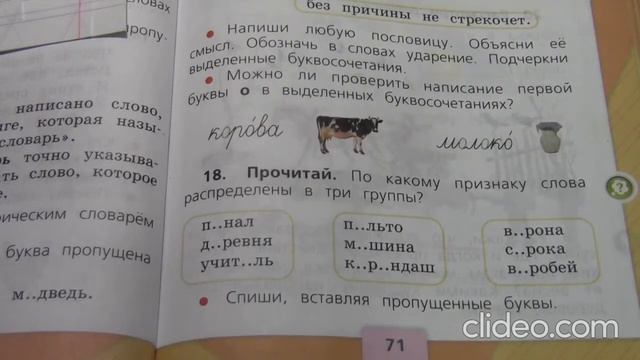 ловах
без причины не стрекочет.
ропу.
• Напиши любую пословицу. Объясни её
смысл. Обозначь в словах ударение. Подчеркни
выделенные буквосочетания.
• Можно ли проверить написание первой
буквы о в выделенных буквосочетаниях?
написано слово,
ге, которая назы-
словарь».
рь точно указыва-
ать слово, которое
е.
рическим словарём
буква пропущена
м..дведь.
коро́ва
молоко́
18. Прочитай. По какому признаку слова
распределены в три группы?
п..нал
д..ревня
учит..ль
п..льто
м..шина
к..р..ндаш
в..рона
с..рока
в..робей
• Спиши, вставляя пропущенные буквы.
71
clideo.com